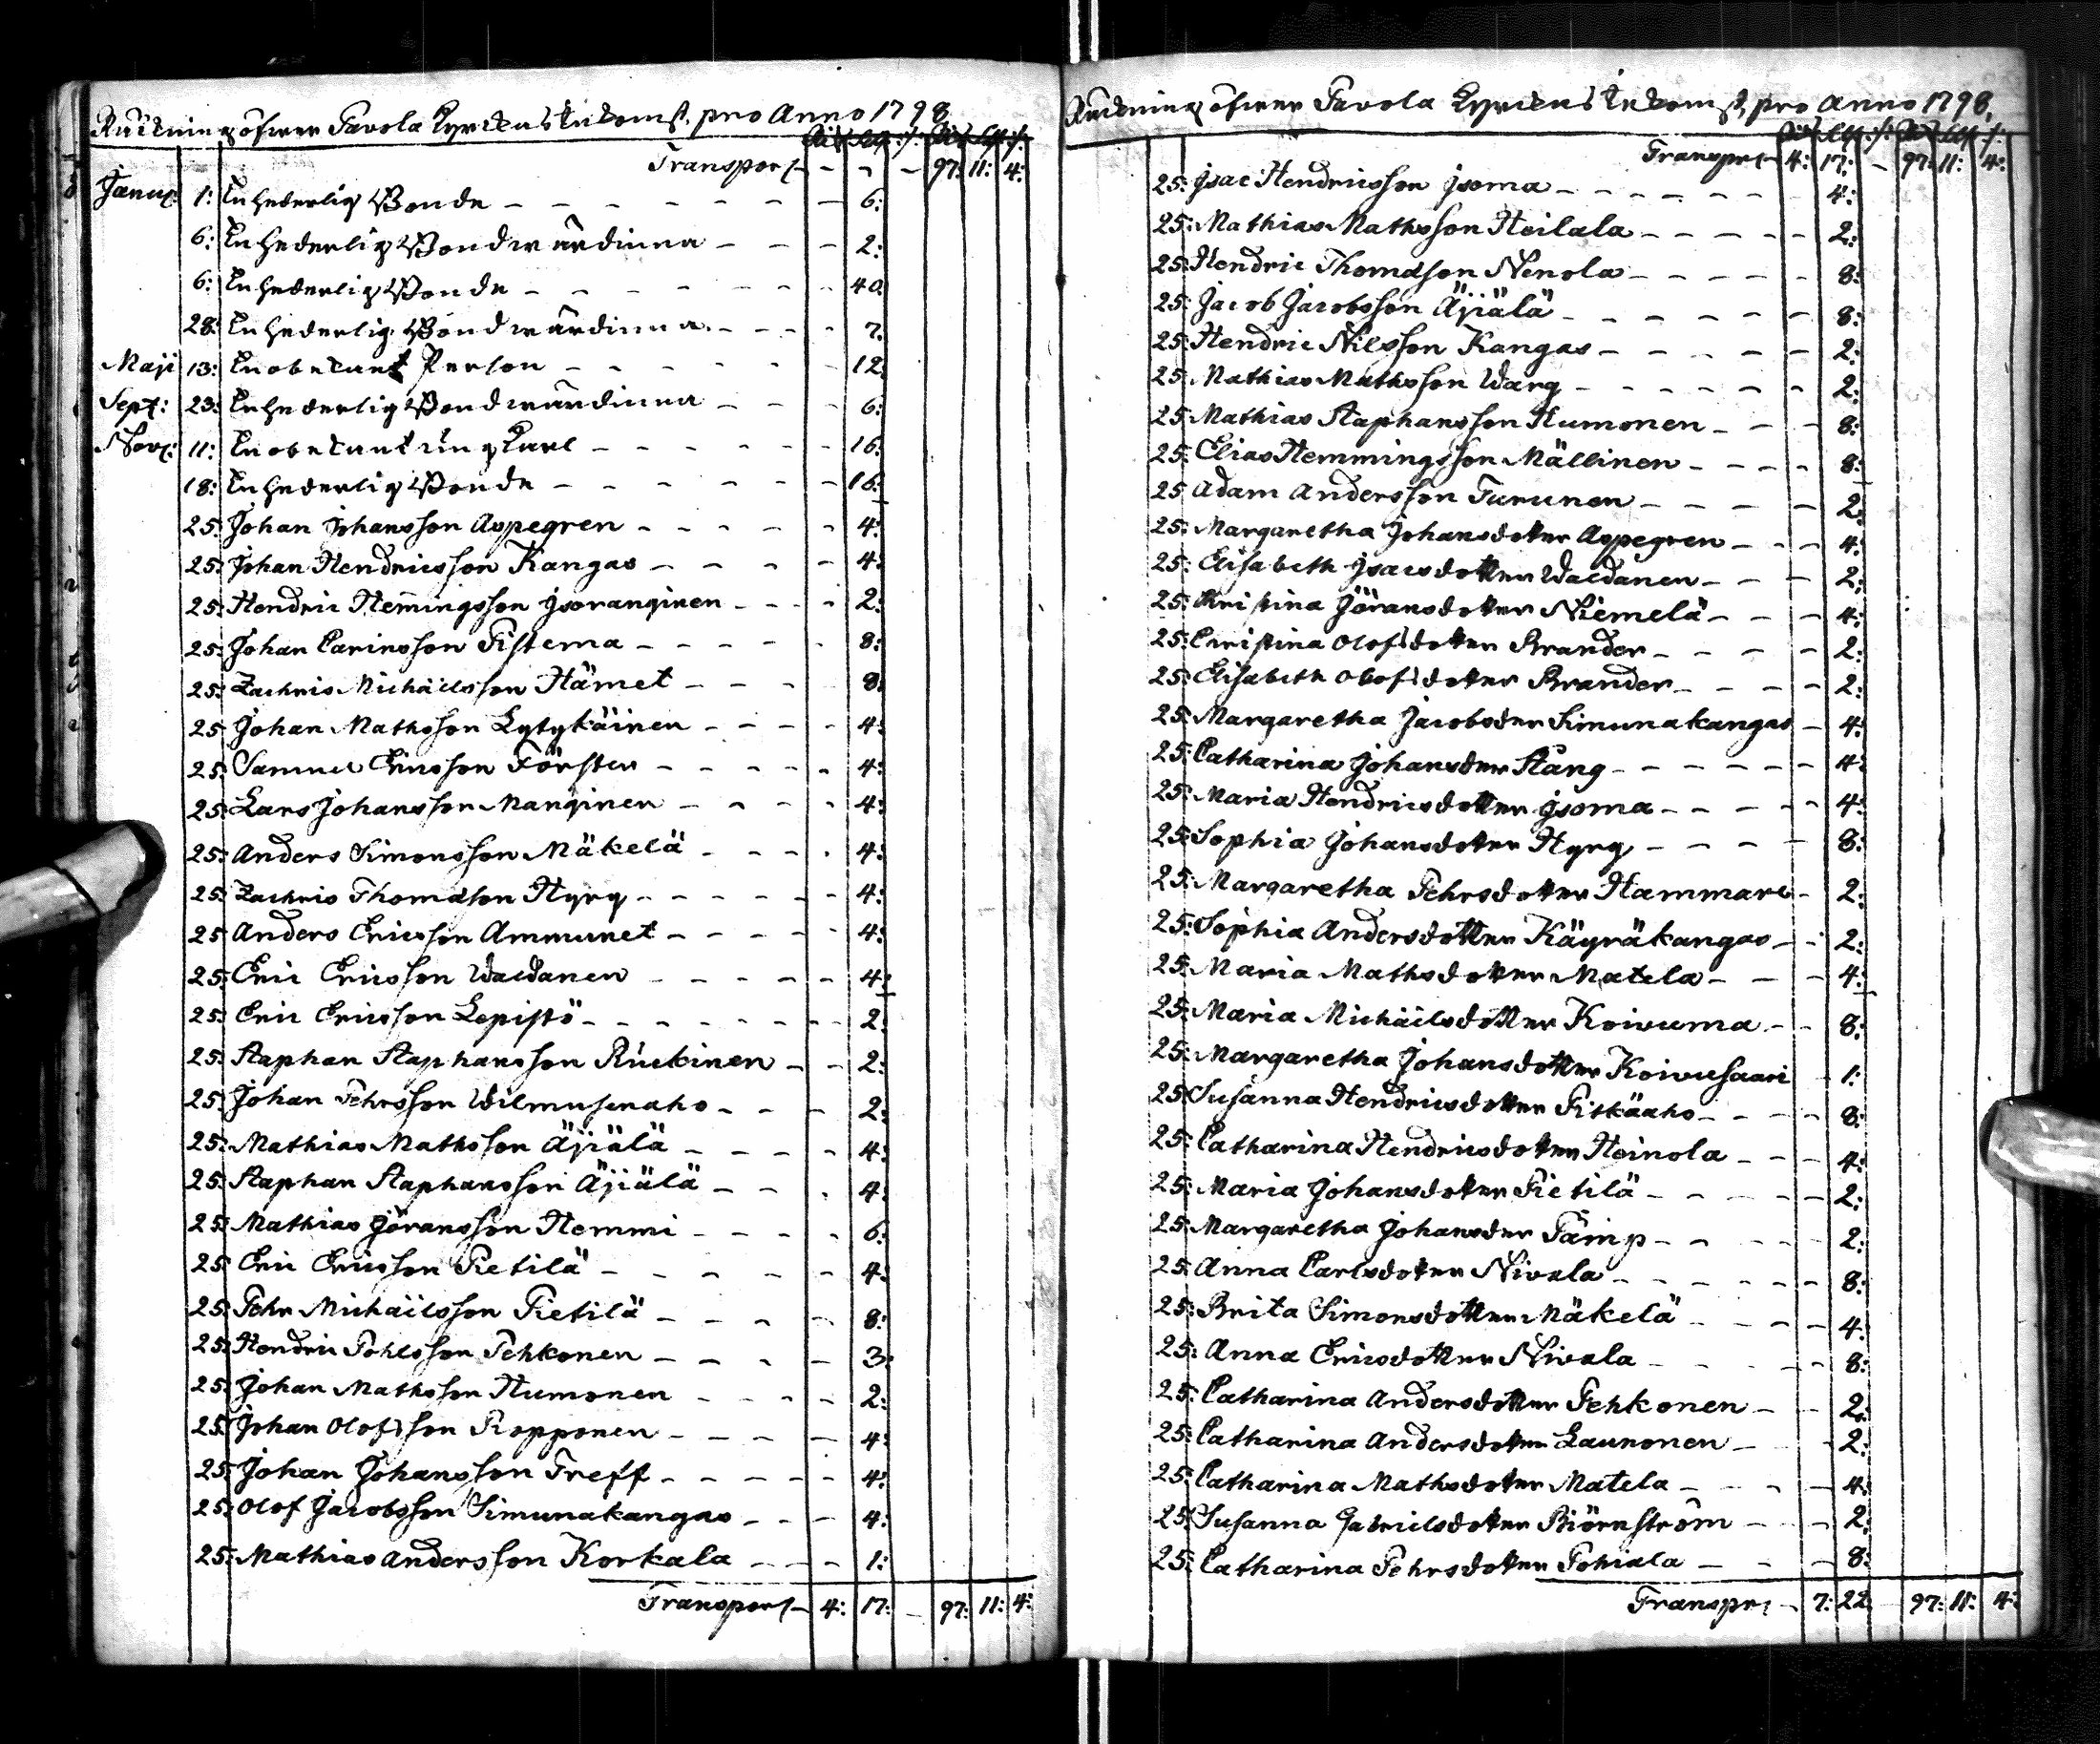 Räkning öfwer Pavola Kyrckans Inkomst, pro Anno 1798
Rd. sk. :/: Rd. sk. :/:
Transport - - - 97: 11: 4:
Janu: 1: En hederlig Bonde - - - 6:
6: En hederlig Bondwärdinna - - - 2:
6: En hederlig Bonde - - - 40:
28: En hederlig Bondwärdinna - - - 7:
Maji 13: En obekant Person - - - 12:
Sept: 23: En hederlig Bondwärdinna - - - 6:
Nov: 11: En obekant ung Karl - - - 16:
18: En hederlig Bonde - - - 16:
25: Johan Johansson Aspegren - - - 4:
25: Johan Hendricsson Kangas - - - 4:
25: Hendric Hemingsson Jsoranginen - - - 2:
25: Johan Carinsson Pistema - - - 8:
25: Zachris Michäelsson Hämet - - - 8:
25: Johan Mathsson Lytykäinen - - - 4:
25: Samuel Ericsson Förster - - - 4:
25: Lars Johansson Manginen - - - 4:
25: Anders Simonsson Mäkelä - - - 4:
25: Zachris Thomasson Hyry - - - 4:
25: Anders Ericsson Ammunet - - - 4:
25: Eric Ericsson Waldanen - - - 4:
25: Eric Ericsson Lepistö - - - 2:
25: Staphan Staphansson Ruckinen - - 2:
25: Johan Pehrsson Wilmusenaho - - - 2:
25: Mathias Mathsson Äjiälä - - - 4:
25: Staphan Staphansson Äjiälä - - - 4:
25: Mathias Göransson Hemmi - - - 6:
25: Eric Ericsson Pietilä - - - 4:
25: Pehr Michäelsson Pietilä - - - 8:
25: Hendric Pohlsson Pehkonen - - - 3:
25: Johan Mathsson Humonen - - - 2:
25: Johan Olofsson Ropponen - - - 4:
25: Johan Johansson Treff - - - 4:
25: Olof Jacobsson Simunakangas - - - 4:
25: Mathias Andersson Korkala - - - 1:
Transport - 4: 17: - 97: 11: 4:
Räkning öfwer Pavola Kyrckans Inkomst, pro Anno 1798,
Rd. sk. :/: Rd. sk. :/:
Transprt - 4: 17: - 97: 11: 4:
25: Jsac Hendricsson Jsoma - - - 4:
25: Mathias Mathsson Heilala - - - 2:
25: Hendric Thomasson Nenola - - - 8:
25: Jacob Jacobsson Äjiälä - - - 8:
25: Hendric Nilsson Kangas - - - 2:
25: Mathias Mathsson Warg - - - 2:
25: Mathias Staphansson Humonen - - - 8:
25: Elias Hemmingsson Mällinen - - - 8:
25: Adam Andersson Turunen - - - 2:
25: Margaretha Johansdotter Aspegren - - - 4:
25: Elisabeth Jsacsdotter Waldanen - - - 2:
25: Christina Göransdotter Niemelä - - - 4:
25: Christina Olofsdotter Brander - - - 2:
25: Elisabeth Olofsdotter Brander - - - 2:
25: Margaretha Jacobsder Simunakangas - 4:
25: Catharina Johansder Stång - - - 4:
25: Maria Hendricsdotter Jsoma - - - 4:
25: Sophia Johansdotter Hyry - - - 8:
25: Margaretha Pehrsdotter Hammare - 2:
25: Sophia Andersdotter Käyräkangas - - 2:
25: Maria Mathsdotter Matela - - - 4:
25: Maria Michäelsdotter Koivuma - - 8:
25: Margaretha Johansdotter Koivusaari - 1:
25: Susanna Hendricsdotter Pitkäaho - - - 8:
25: Catharina Hendricsdotter Heinola - - - 4:
25: Maria Johansdotter Pietilä - - - 2:
25: Margaretha Johansder Tämp - - - 2:
25: Anna Carlsdotter Nivala - - - 8:
25: Brita Simonsdotter Mäkelä - - - 4:
25: Anna Ericsdotter Nivala - - - 8:
25: Catharina Andersdotter Pehkonen - - 2:
25: Catharina Andersdotter Launonen - - 2:
25: Catharina Mathsdotter Matela - - - 4:
25: Susanna Gabrielsdotter Biörnström - - - 2:
25: Catharina Pehrsdotter Pohiala - - - 8:
Transprt - 7: 22: 97: 11: 4: